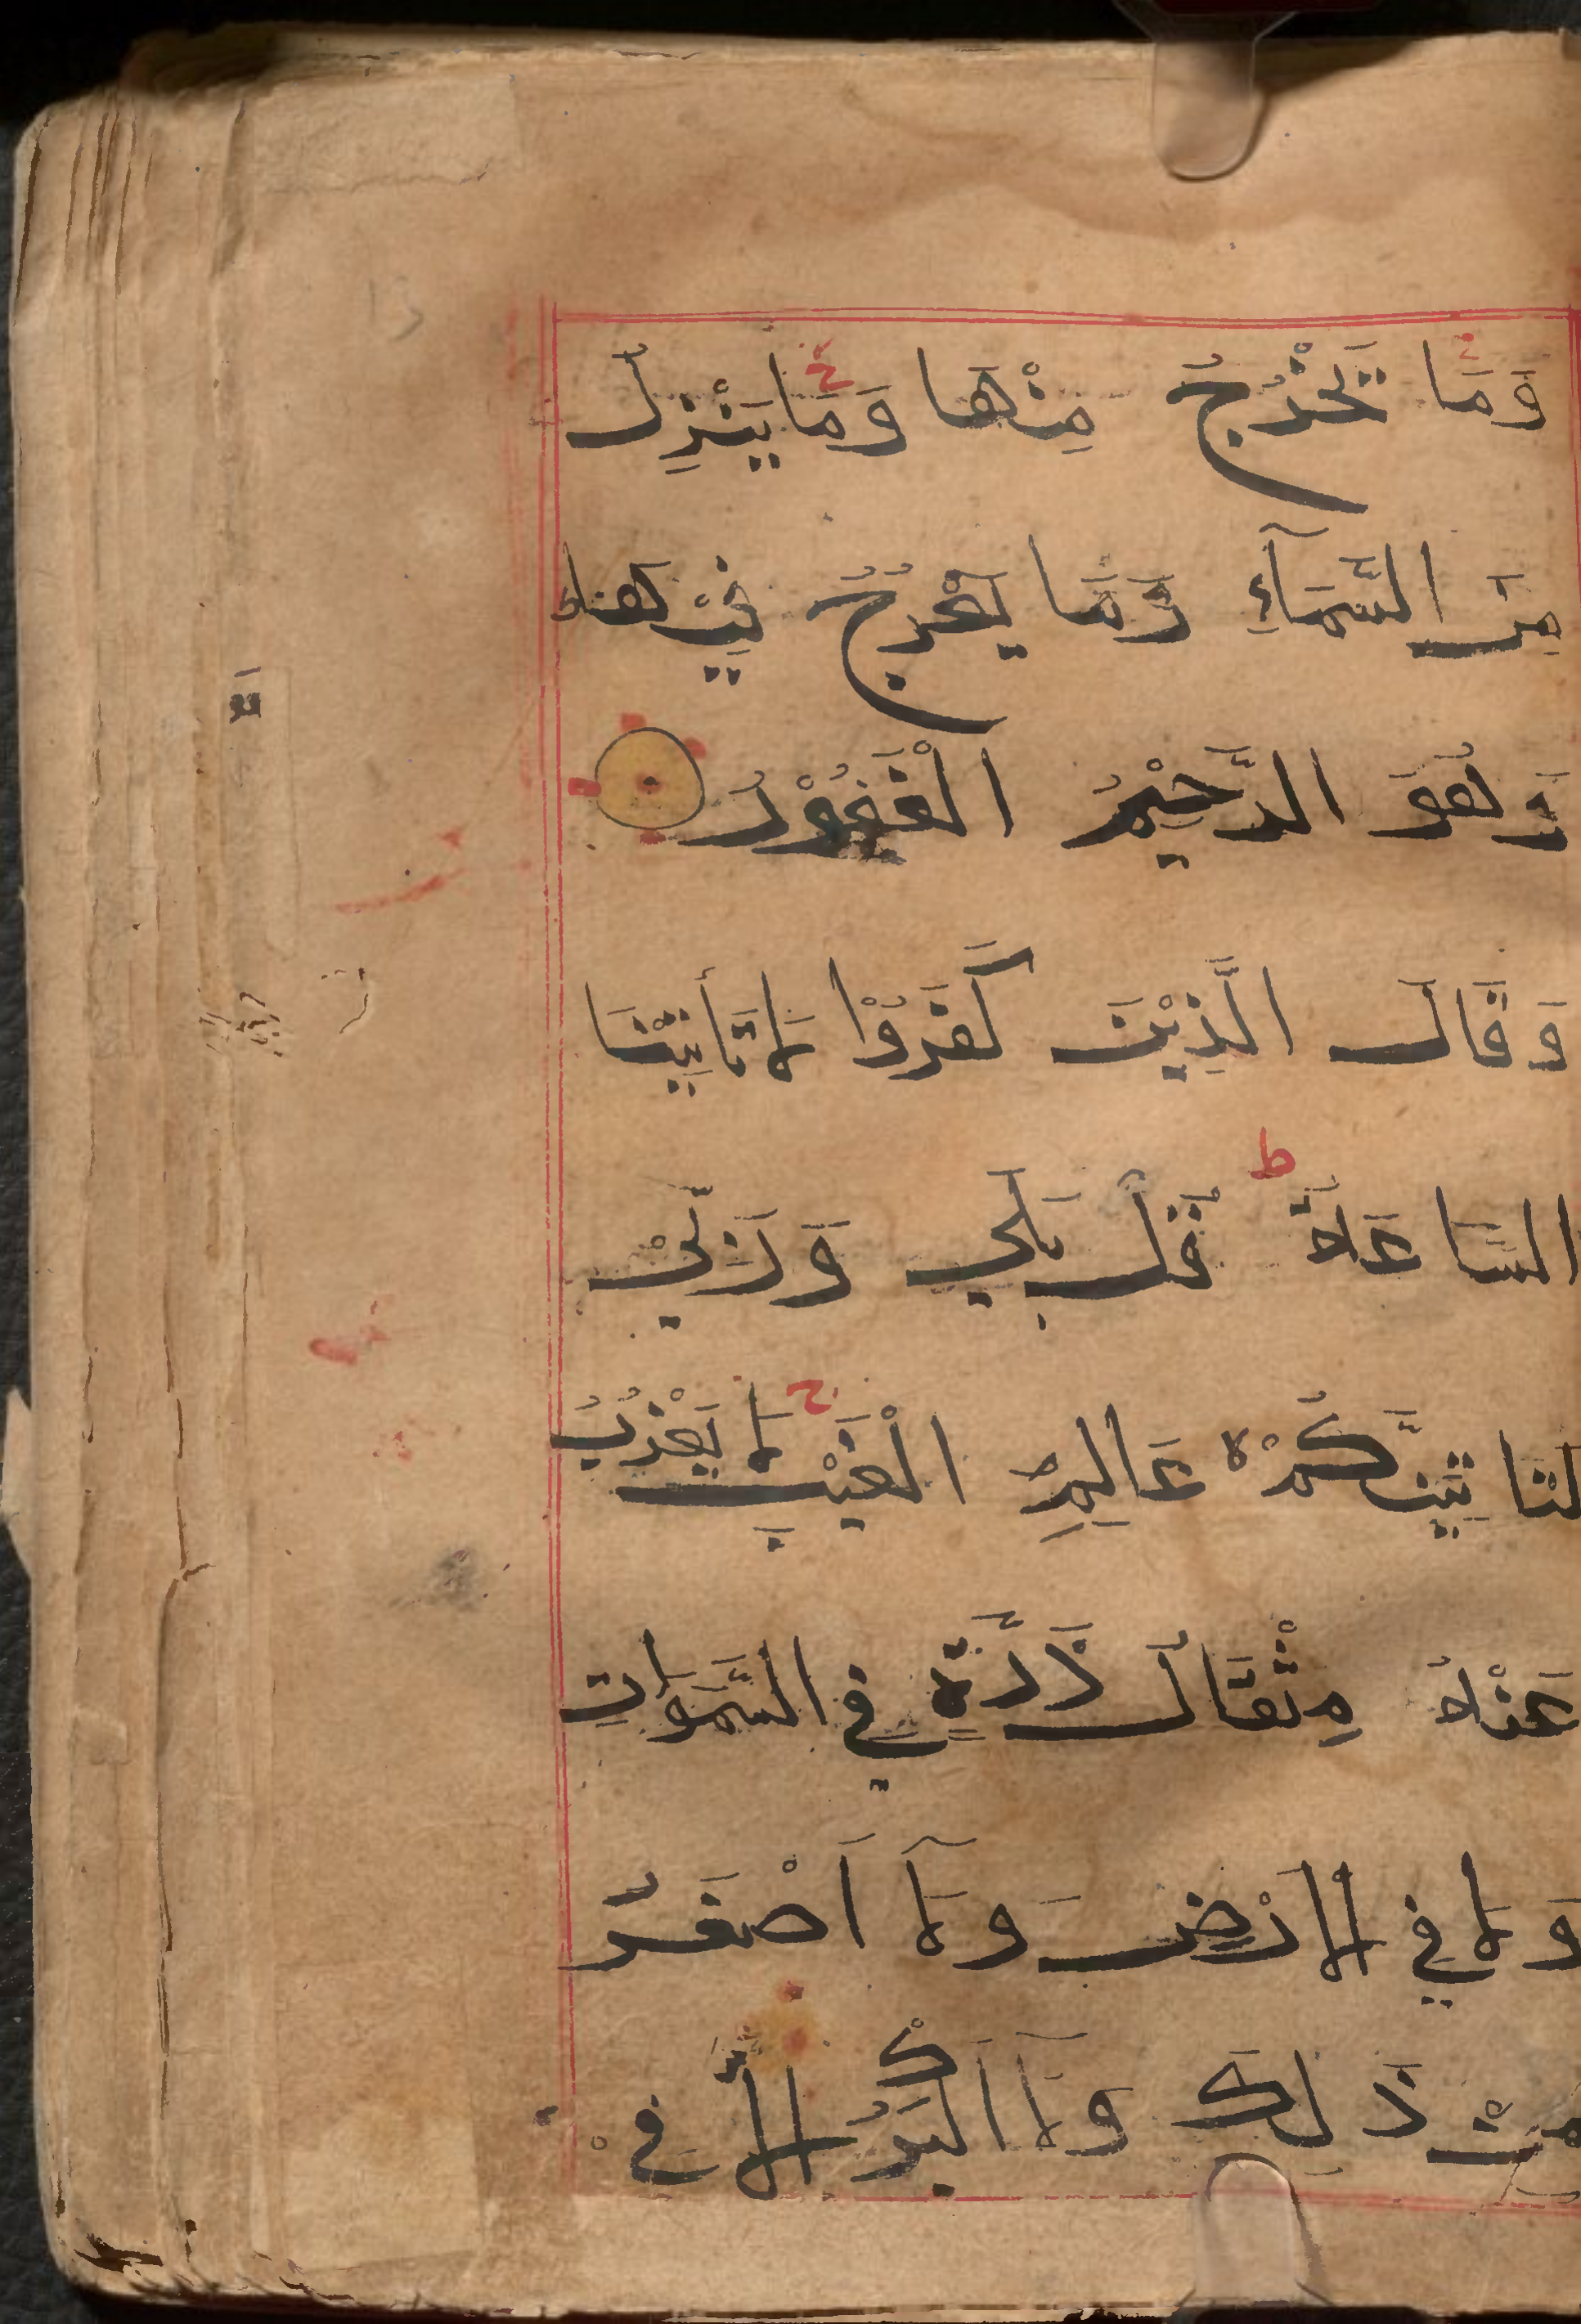 وَمَا يَخْرُجُ مِنْهَا وَمَا يَنْزِلُ
مِنَ السَّمَآءِ وَمَا يَعْرُجُ فِيْهَا ط
وَهُوَ الرَّحِيْمُ الْغَفُوْرُ
وَقَالَ الَّذِيْنَ كَفَرُوْا لَا تَأْتِيْنَا
السَّاعَةُ ط قُلْ بَلٰي وَرَبِّيْ
لَتَاتِيَنَّكُمْ لا عَالِمِ الْغَيْبِ ج لَا يَعْزُبُ
عَنْهُ مِثْقَالُ ذَرَّةٍ فِي السَّمٰوَاتِ
وَلَا فِي الْاَرْضِ وَلَآ اَصْغَرُ
مِنْ ذٰلِكَ وَلَآ اَكْبَرُ اِلَّا فِيْ